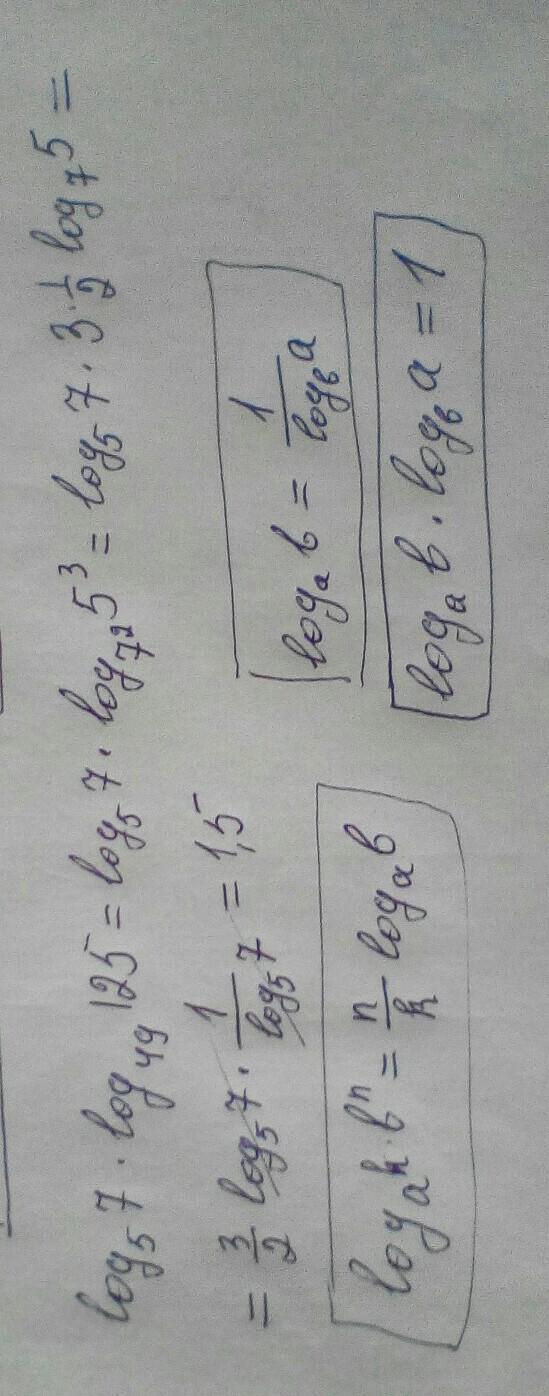 log₅7 · log₄₉125 = log₅7 · log₇²5³ = log₅7 · 3 · 1/2 log₇5 =
= 3/2 log₅7 · 1/log₅7 = 1,5
logₐb = 1/log_b a
log_{a^k} · bⁿ = n/k logₐb
logₐb · log_b a = 1